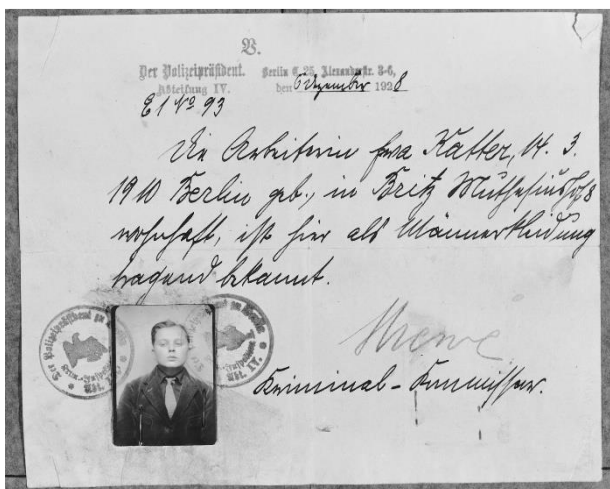 V.
Der Polizeipräsident.
Abteilung IV.
Berlin C. 25, Alexanderstr. 3-6,
den 6 Dezember 1928
E1 No 93
Die Arbeiterin Eva Katter, 14. 3.
1910 Berlin geb., in Britz Muthesiushof 8
wohnhaft, ist hier als Männerkleidung
tragend bekannt.
Kriminal-Kommissar.
Der Polizeipräsident in
Abt. IV.
Abt. IV.